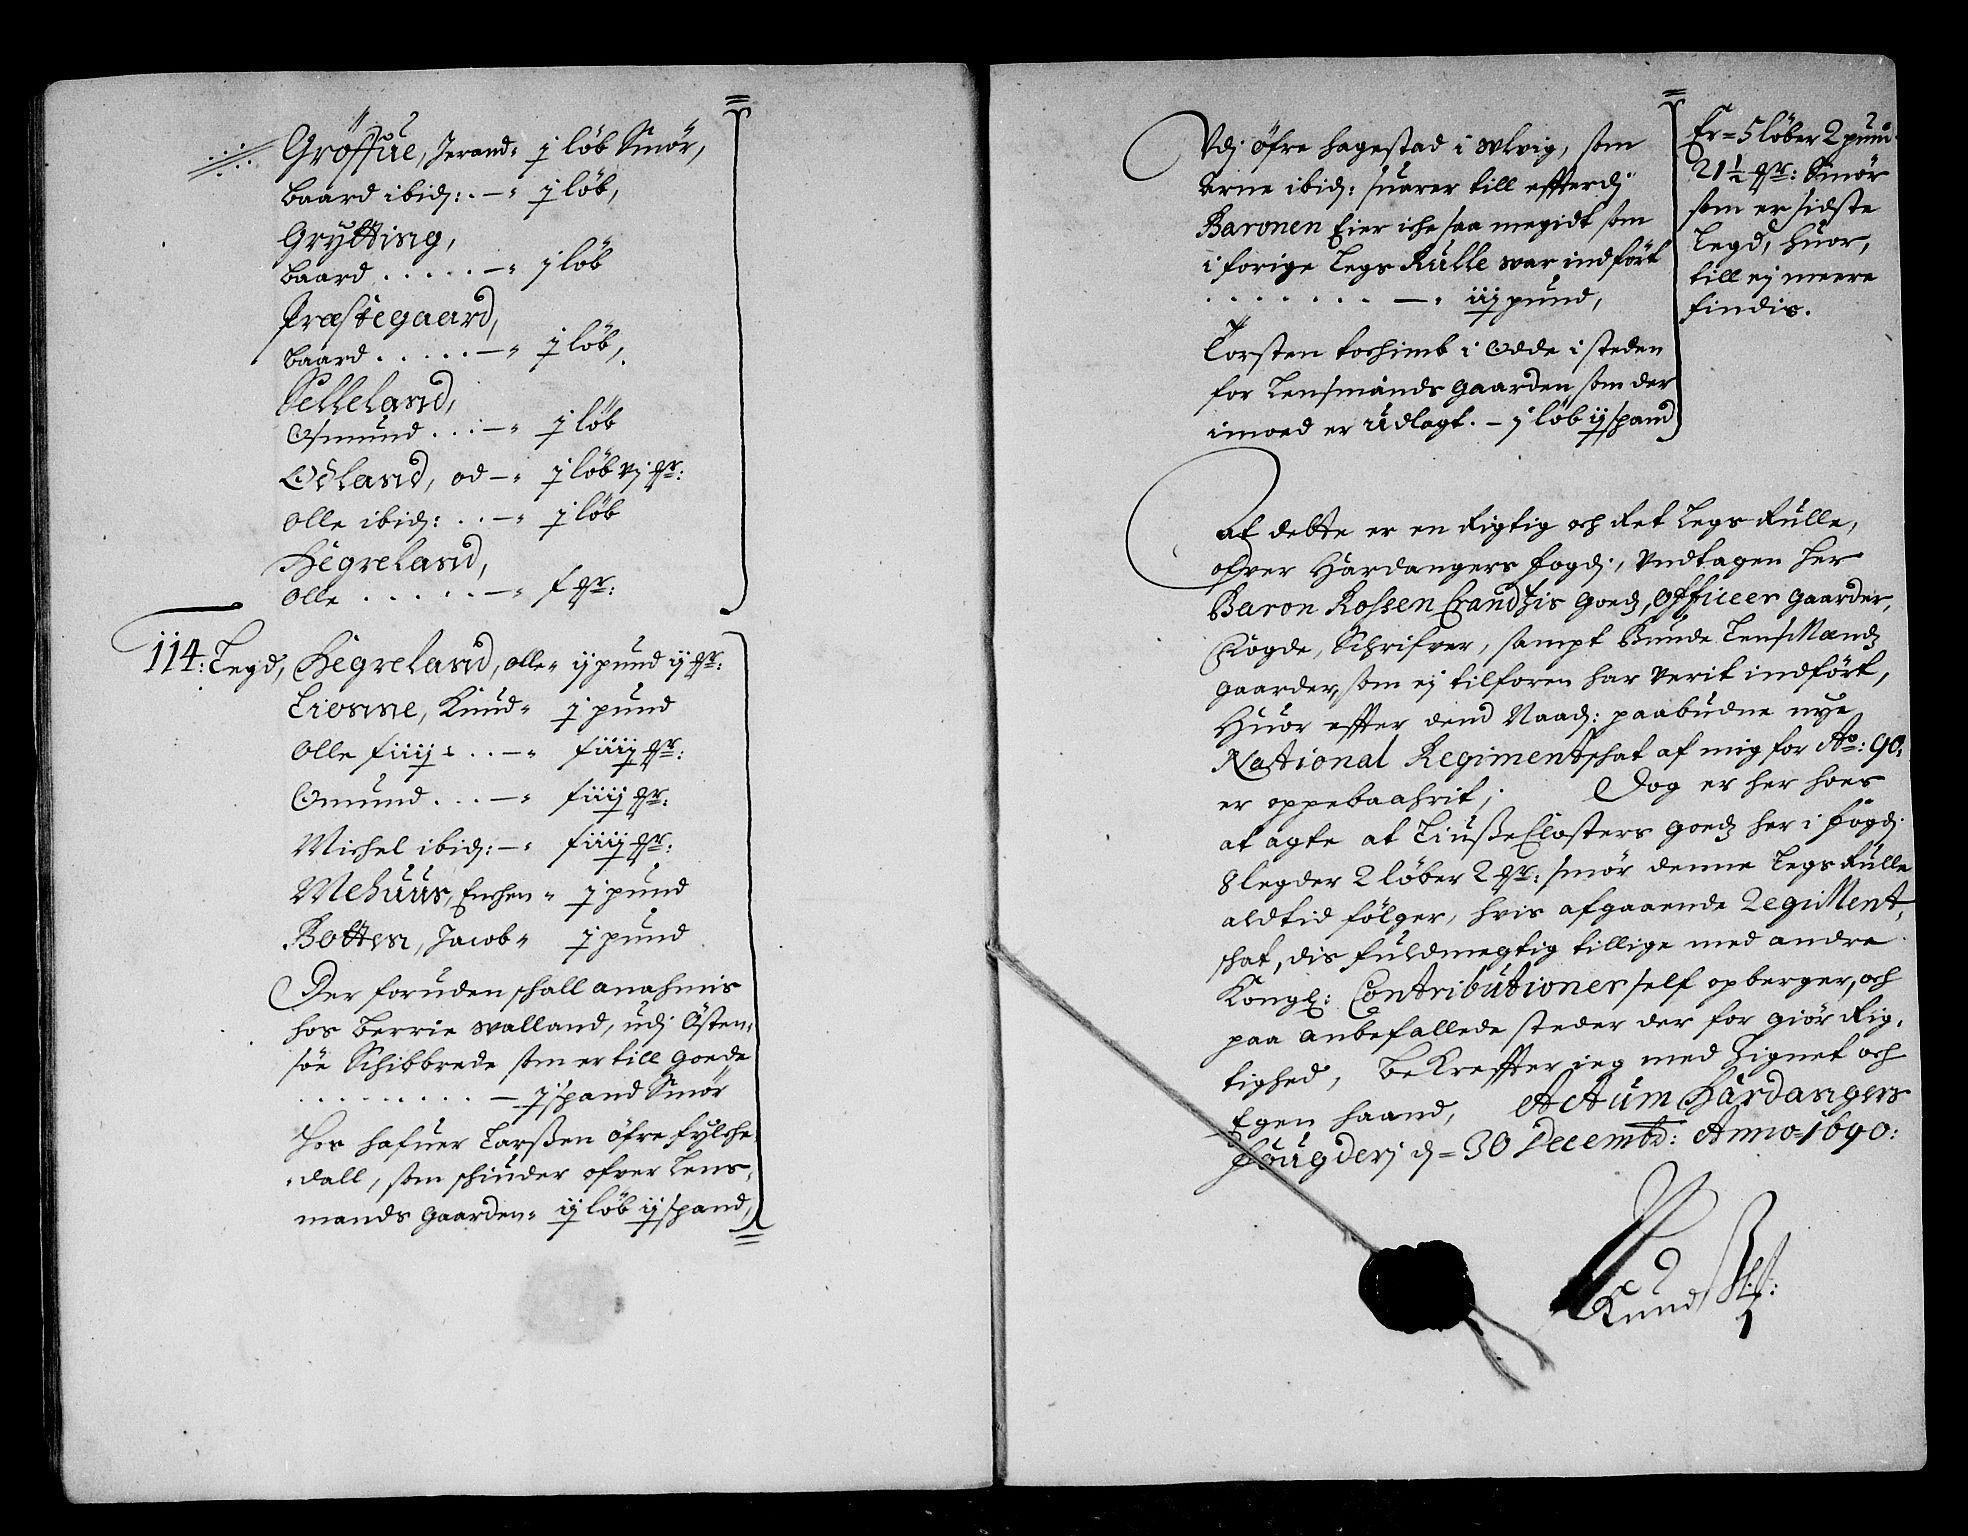 Gröffue, Jerand - j löb Smör,
Baard ibid: . — j löb,
Grytting,
Baard . . . . . — j löb
Præstegaard,
Baard . . . . . — j löb,
Selleland,
Osmund . . . — j löb
Odland, od — j löb vj
Olle ibid: . . — j löb
Hegreland,
Olle . . . . . —
114: Legd, Hegreland, olle - ij pund ij
Liosne, Knud - j pund
Olle
Omund . . . —
Michel ibid: —
Mehuus, - j pund
Botten, Jacob - j pund
Der foruden schall anahmis
hos Berrie Walland, udj Östen,
söe Schibbrede som er till goede
. . . . . . . . . — j spand Smör
Hos hafuer Larßen öfre fylche,
dall, som schinder ofver Lens,
mands gaarden - ij löb ij spand,
Vdj öfre hagestad i Wlvig, som
Arne ibid: suarer till effterdj
Baronen Eier iche saa megidt som
i forige Legs Rulle war indfört
. . . . . . . — iij pund,
Torsten tochimb i Odde i steden
for Lensmands gaarden, som der
imoed er udlagt. — j löb ij spand
Er = 5 löber 2 pund
21 ½ Smör
som er sidste
Legd, huor,
till ej meere
findis.
At dette er en Rigtig och Ret Legs Rulle,
ofver Hardangers fogdj, Vndtagen her
Baron Rosen Crandtzis Goedz, Officeer gaarder,
Fogde, Schrifver, sampt Bunde LensMands
gaarder, som ej tilforen har verit indfört,
Huor effter dend Naad: paabudne nye
National Regimentschat af mig for Ao: 90,
er oppebaahrit; Dog er her hoes
at agte at LiußeClosters goedz her i fogdj
8 legder 2 löber 2 smör denne Legs Rulle
aldtid fölger, hvis afgaaende Regiment,
schat, dis fuldmegtig tillige med andre
Kongl: Contributioner self opberger, och
paa anbefallede steder der for giör Rig,
tighed, Bekreffter ieg med Zignet och
Egen haand, Actum Hardangers
Fougderj d = 30 Decembr: Anno = 1690:
Knud